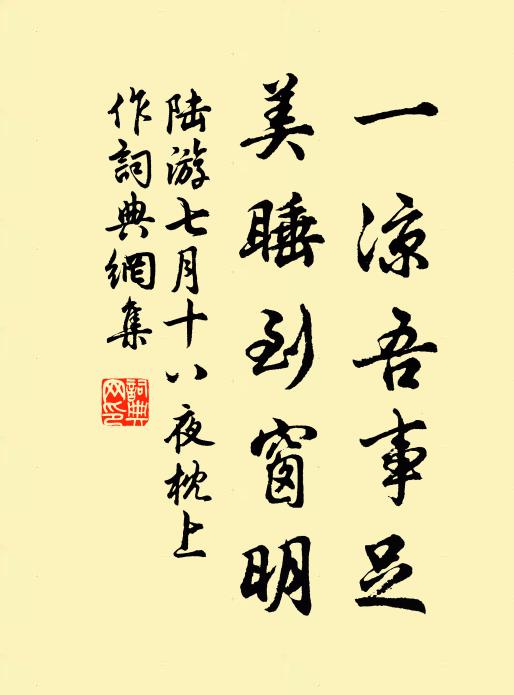 一涼吾事足
美睡到窗明
陸游七月十八夜枕上
作詞典網集
詞典
网印